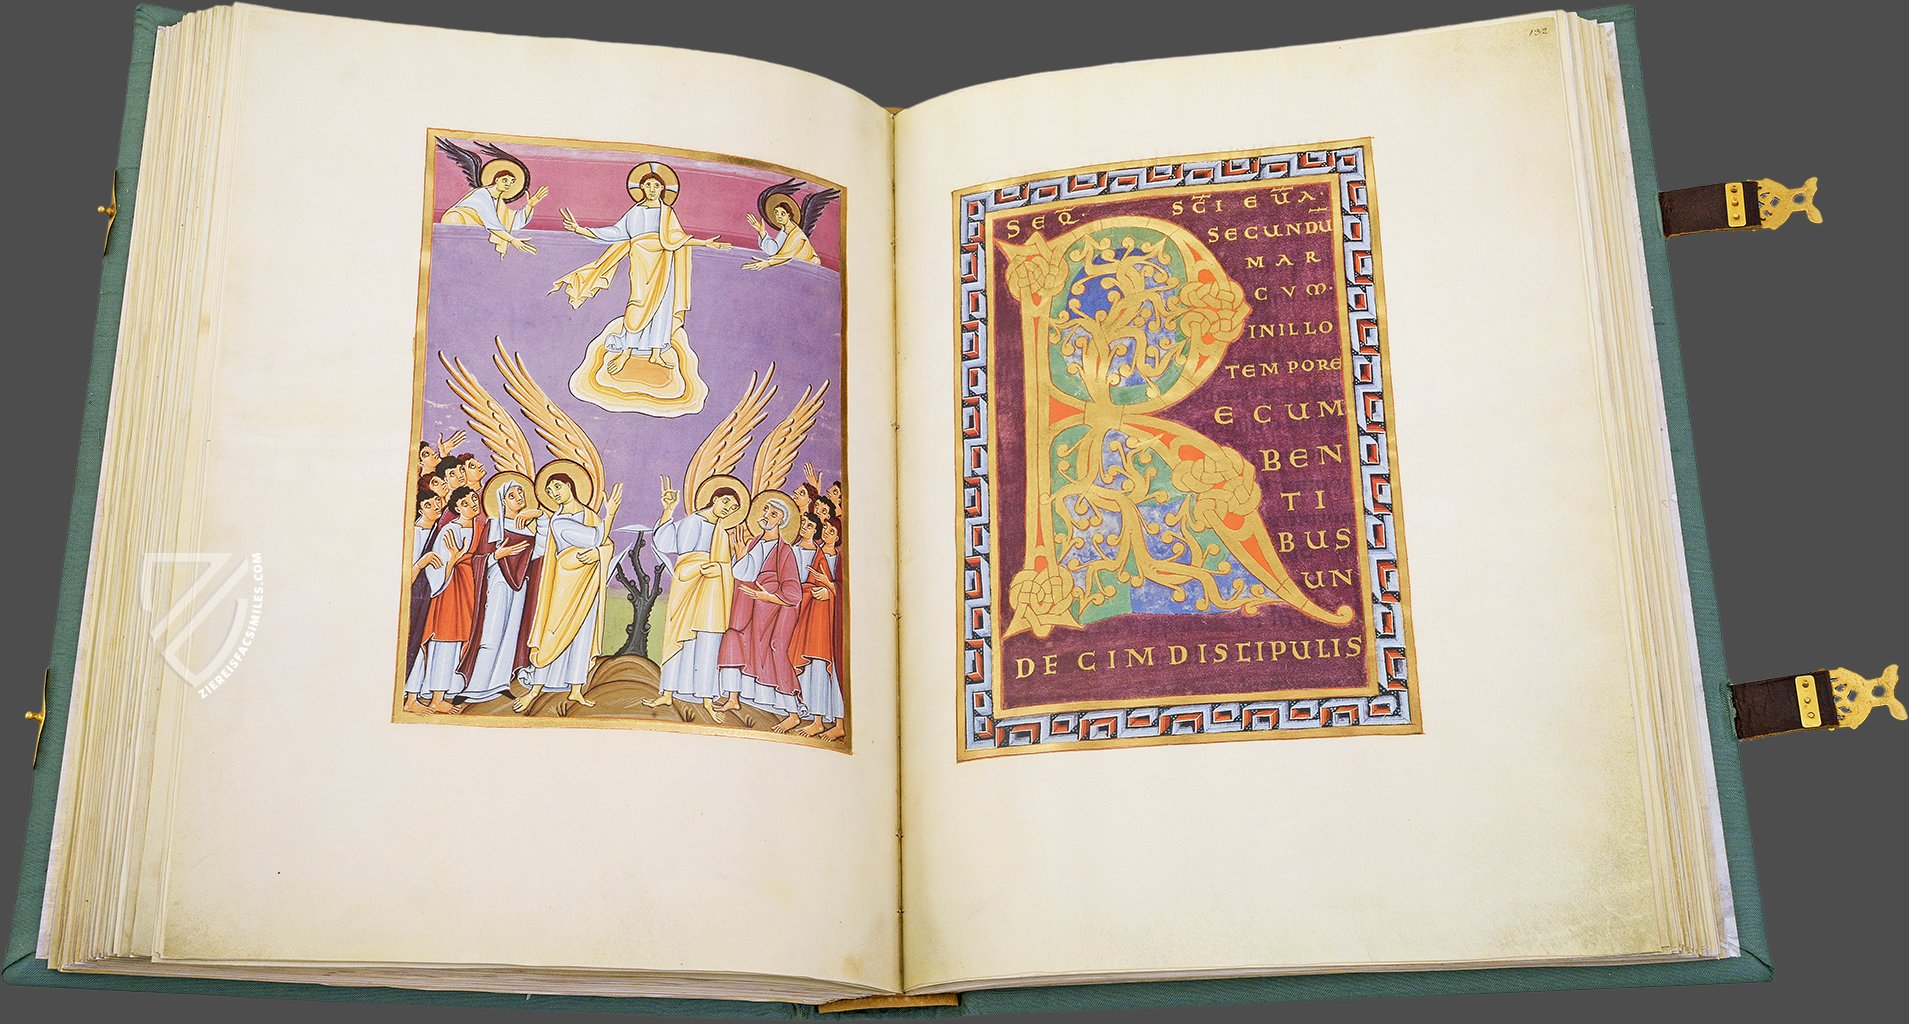 132
SEQ̄· SC̄I EŪA
SECUNDŪ
MAR
CVM·
INILLO
TEMPORE
RECUM
BEN
TI
BUS
UN
DECIMDISCIPULIS
ZIEREISFACSIMILES.COM